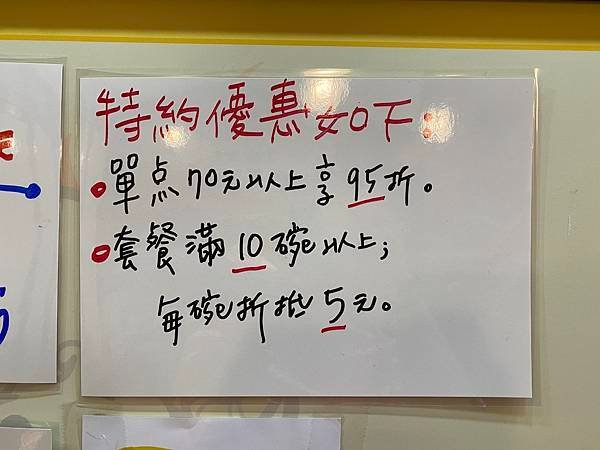 特約優惠如下:
單点70元以上享95折。
套餐滿10碗以上;
每碗折抵5元。